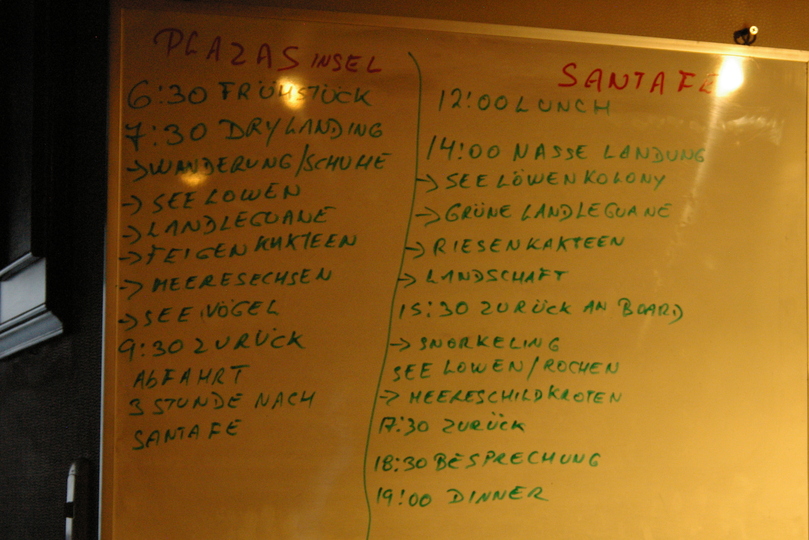 PLAZAS INSEL
6:30 FRÜHSTÜCK
7:30 DRYLANDING
→ WANDERUNG/SCHUHE
→ SEE LOWEN
→ LANDLEGUANE
→ FEIGEN KAKTEEN
→ MEERESECHSEN
→ SEE VÖGEL
9:30 ZURÜCK
ABFAHRT
3 STUNDE NACH
SANTA FÉ
SANTA FE
12:00 LUNCH
14:00 NASSE LANDUNG
→ SEE LÖWEN KOLONY
→ GRÜNE LANDLEGUANE
→ RIESENKAKTEEN
→ LANDSCHAFT
15:30 ZURÜCK AN BOARD
→ SNORKELING
SEE LOWEN / ROCHEN
→ MEERESCHILDKROTEN
17:30 ZURÜCK
18:30 BESPRECHUNG
19:00 DINNER